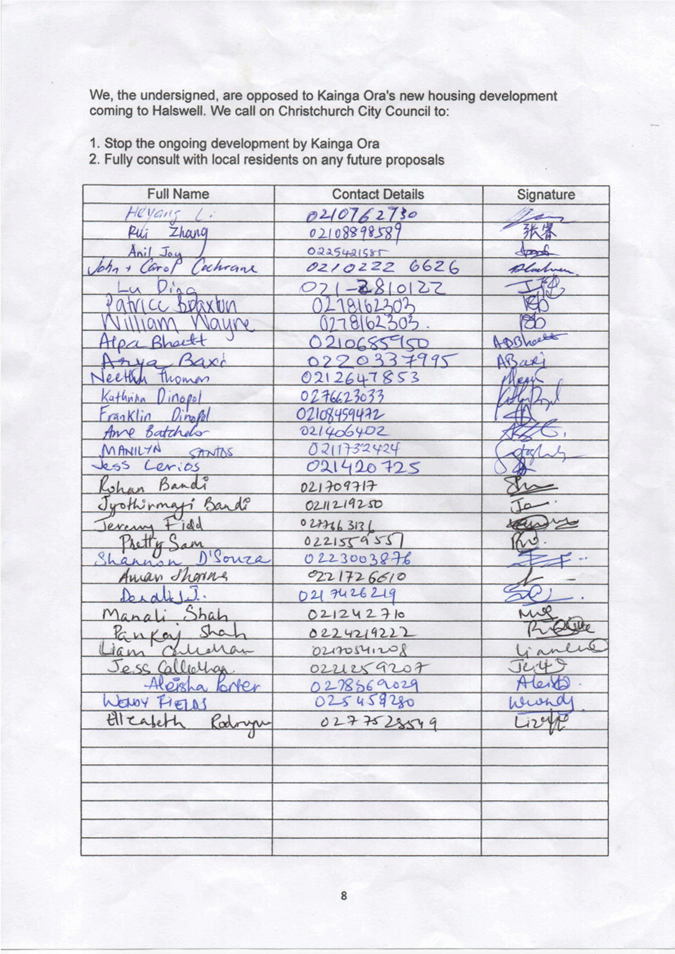 We, the undersigned, are opposed to Kainga Ora's new housing development
coming to Halswell. We call on Christchurch City Council to:
1. Stop the ongoing development by Kainga Ora
2. Fully consult with local residents on any future proposals
Full Name Contact Details Signature
Heyang Li 0210762730
Rui Zhang 02108898589 张睿
Anil Joy 0225421585
John + Carol Cochrane 0210222 6626
Lu Ding 021-2810122
Patrice Braxton 0278162303 PB
William Wayne 0278162303.
Alpa Bhatt 0210685950 ADBhatt
Arya Baxi 0220337995 ABaxi
Neethu Thomas 0212647853
Kathrina Dinopol 0276623033
Franklin Dinopol 02108459472
Anne Batchelor 021406402
MANILYN SANTOS 0211732424
Jess Lerios 021420725
Rohan Bandi 021709717
Jyothirmayi Bandi 0211219250
Jeremy Fidd
Pretty Sam 0221559551
Shannon D'Souza 0223003876
Aman Sharma 0221726610
0217426219
Manali Shah 021242710
Pankaj Shah 0224219222
Liam
Jess 0221259207
Aleisha Porter 0278569029
WENDY FIELDS 025459280 Wendy
Elizabeth 0277528549
8